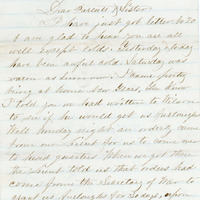 Dear Parents & Sister
I have just got letter No 20
I am glad to hear you are all
well except colds. Yesterday & today
have been awful cold. Saturday was
warm as summer. I came pretty
being at home Dear Years. You know
I told you we had written to Wilson
to see if he would get us furloughs
Well Monday night an orderly came
from our Lieut for us to come
to head quarters. When we got there
the Lieut told us that orders had
come from the Secretary of War to
grant us furloughs for 20 days, upon